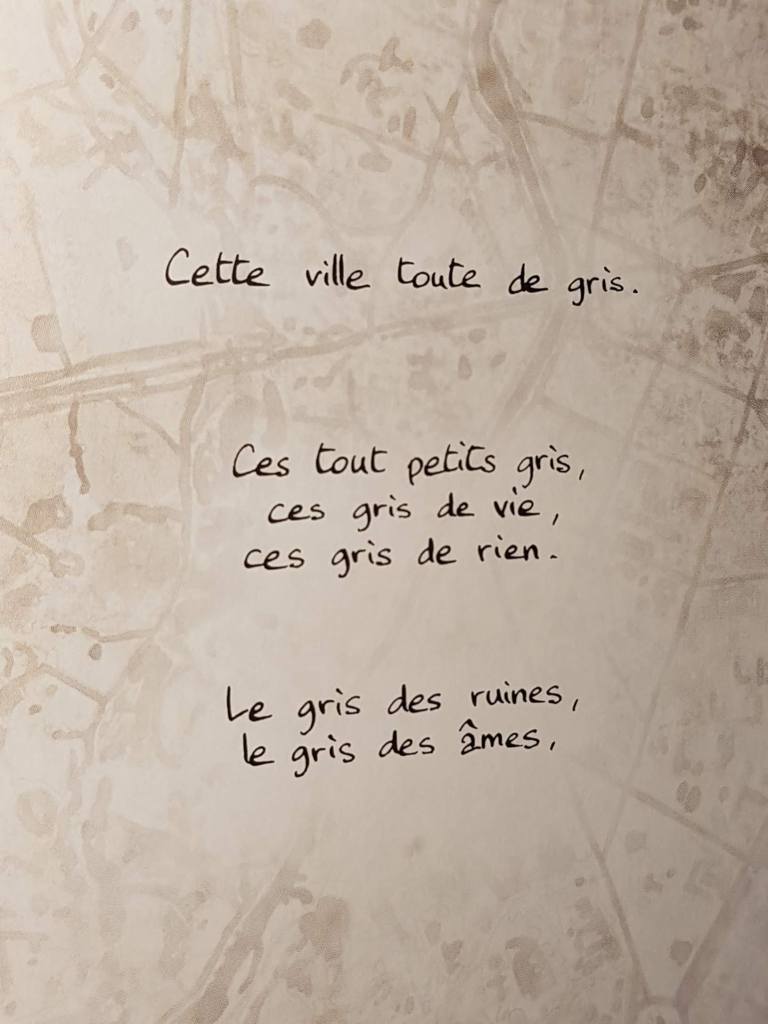 Cette ville toute de gris.
Ces tout petits gris,
ces gris de vie,
ces gris de rien.
Le gris des ruines,
le gris des âmes,